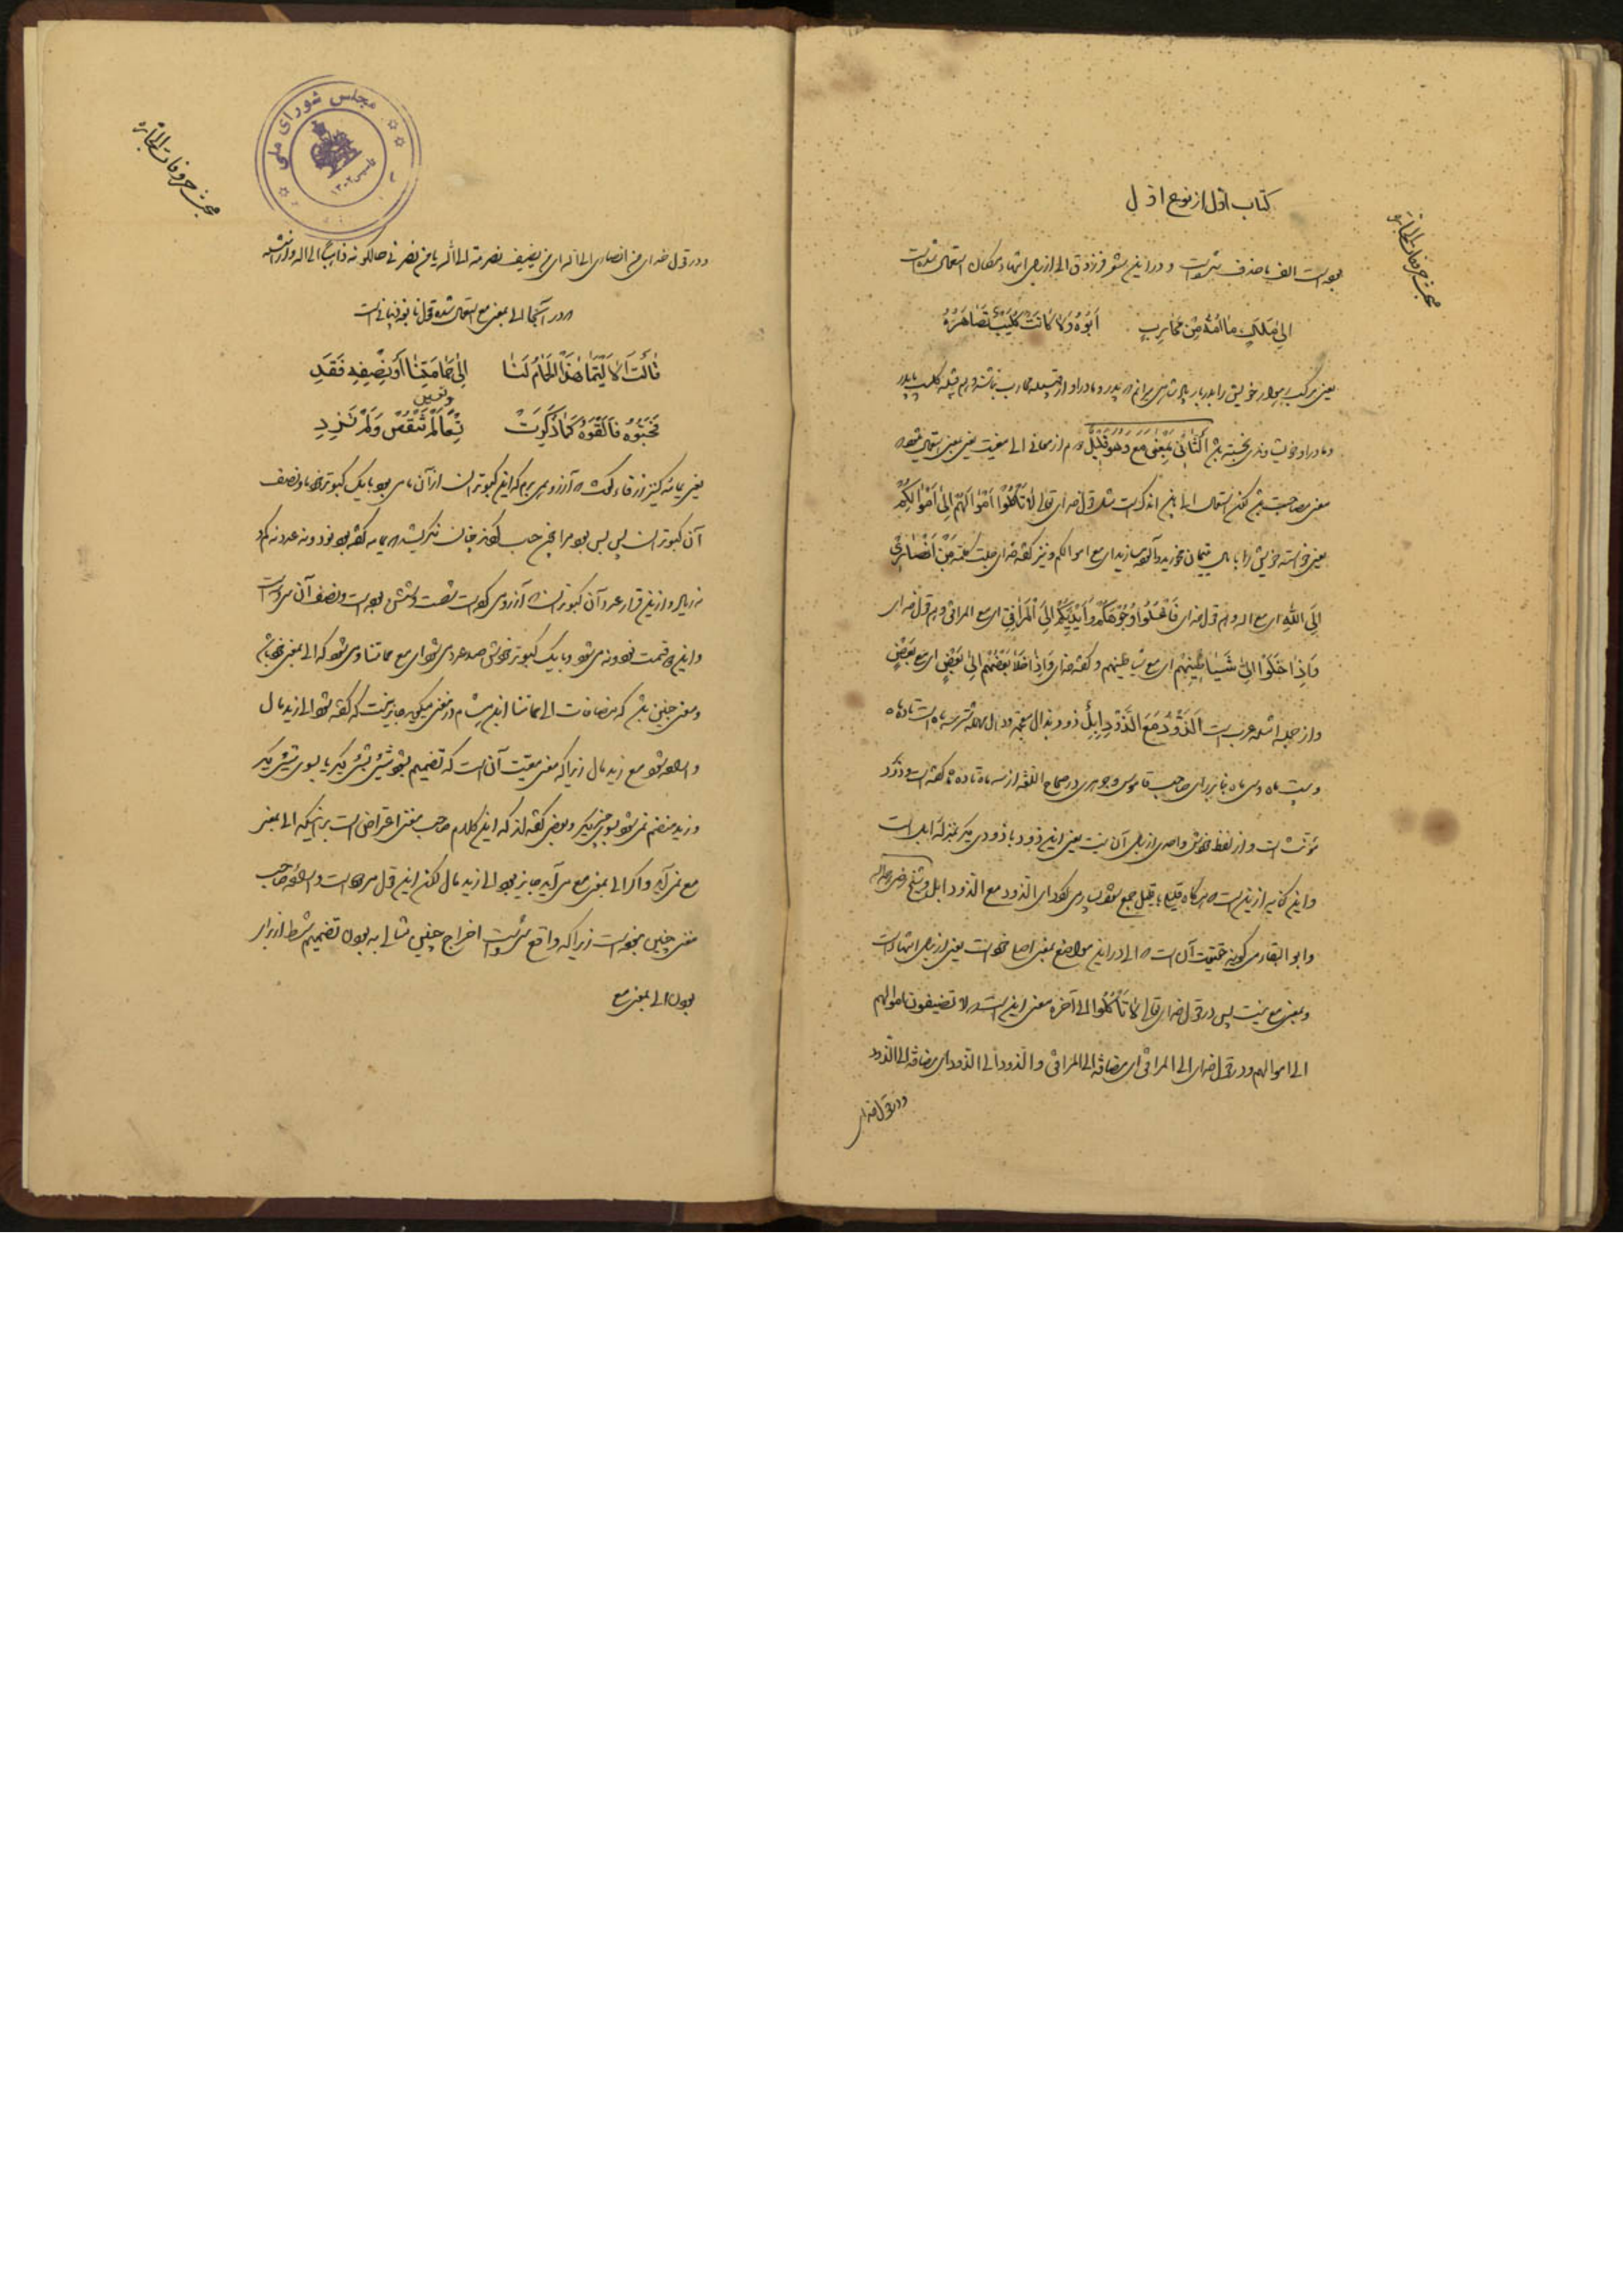 کتاب اول از نوع اول
مبحث حروفات الجاره
بوده است الف با حذف شده است و در این شعر فرزدق الی از برای انتهاء مکان استعمال شده است
اِلیٰ مَلِکٍ مٰا اُمُّهُ مِنْ مُحٰارِبٍ اَبُوهُ وَلاٰ کٰانَتْ کُلَیْبٌ تُصٰاهِرُهُ
یعنی مرکب خویش را بدربار پادشاهی میرانم که پدر و مادر او از قبیله محارب نباشند و هم قبیله کلیب با پدر
و مادر او خویشاوندی نجسته باشد اَلثّٰانی بِمَعْنیٰ مَعَ وَهُوَ قَلٰیلٌ دوم از معانی الی معیت یعنی بمعنی استعمال میشود که
معنی مصاحبت باشد لکن استعمال الی باین اندک است مثل قول خدای تعالی لاٰ تَاْکُلُوا اَمْوٰالَهُمْ اِلیٰ اَمْوٰالِکُمْ
یعنی خواسته خویش را با مال یتیمان مخورید و آلوده مسازید ای مع اموالکم و نیز گفته خدای جلت کلمته مَنْ اَنْصٰارٖی
اِلَی اللّٰهِ ای مع الله و هم قول خدای فَاغْسِلُوا وُجُوهَکُمْ وَاَیْدِیَکُمْ اِلَی الْمَرٰافِقِ ای مع المرافق و هم قول خدای
وَاِذٰا خَلَوْا اِلیٰ شَیٰاطٖینِهِمْ ای مع شیاطینهم و گفته خدای وَاِذٰا خَلاٰ بَعْضُهُمْ اِلیٰ بَعْضٍ ای مع بَعْضٍ
و از جمله امثله عرب است اَلذَّوْدُ مَعَ الذَّوْدِ اِبِلٌ ذود بذال معجمه و دال مهمله شتر سه ماه است تا ده ماه
و بیست ماه و سی ماه بنابر رای صاحب قاموس و جوهری در صحاح اللغه از سه ماه تا ده ماه گفته است و ذود
مؤنث است و از لفظ خودش واحدی از برای آن نیست یعنی این ذود با ذودی دیگر بمنزله ابل است
و این کنایه از این است که هرگاه قلیلی با قلیل جمع شود بسیاری گردد ای الذود مع الذود ابل و شیخ رضی علیه الرحمه
و ابو البقاء می گویند حقیقت آن است که الی در این مواضع بمعنی اصل خود است یعنی از برای انتها است
و بمعنی مع نیست پس در قول خدای تعالی لاٰ تَاْکُلُوا الی آخره معنی این است که لا تضیفون اموالهم
الی اموالهم و در قول خدای الی المرافق ای مضافة الی المرافق و الذود الی الذود ای مضافة الی الذود
و در قول خدای
مبحث حروفات الجاره
مجلس شورای ملی
تاسیس ۱۳۰۲
و در قول خدای من انصاری الی الله ای من یضیف نصرته الی الله یا من نصرنی حالکونه ذاهباً الی الله و از امثله
که در آنجا الی بمعنی مع استعمال شده قول نابغه ذبیانی است
قٰالَتْ اَلاٰ لَیْتَمٰا هٰذَا الْحَمٰامُ لَنٰا اِلیٰ حَمٰامَتِنٰا اَوْ نِصْفِهِ فَقَدِ
فَحَسَبُوهُ فَاَلْفَوْهُ کَمٰا ذَکَرَتْ تِسْعاً وتسعین لَمْ تَنْقُصْ وَلَمْ تَزِدِ
یعنی یمامه کنیز زرقاء گفت که آرزو می برم که این کبوتران از آن ما می بود با یک کبوتر خود ما و نصف
آن کبوتران پس بس بود مرا پس حساب کردند چنان نگریستند که یمامه گفته بود نود و نه عدد نه کم
نه زیاد و از این قرار عدد آن کبوتران که آرزو می کرد شصت و شش بوده است و نصف آن سی و سه است
و این که قسمت نود و نه می شود و با یک کبوتر خودش صد عدد می شود ای مع حمامتنا و می شود که الی بمعنی خود باشد
و معنی چنین باشد که مضافة الی حمامتنا ابن هشام در مغنی میگوید جایز نیست که گفته شود الی زید مال
و اراده شود مع زید مال زیرا که معنی معیت آن است که تضمیم شود شیئ بشیئ دیگر یا بسوی شیئ دیگر
و زید منضم نمی شود بسوی چیز دیگر و بعضی گفته اند که این کلام صاحب مغنی اعتراض است بر اینکه الی بمعنی
مع نمی آید و اگر الی بمعنی مع می آید جایز بود الی زید مال لکن این قول مردود است و اراده صاحب
مغنی چنین نبوده است زیرا که واقع شده است اخراج چنین مثالی به بودن تضمیم شرط از برای
بودن الی بمعنی مع